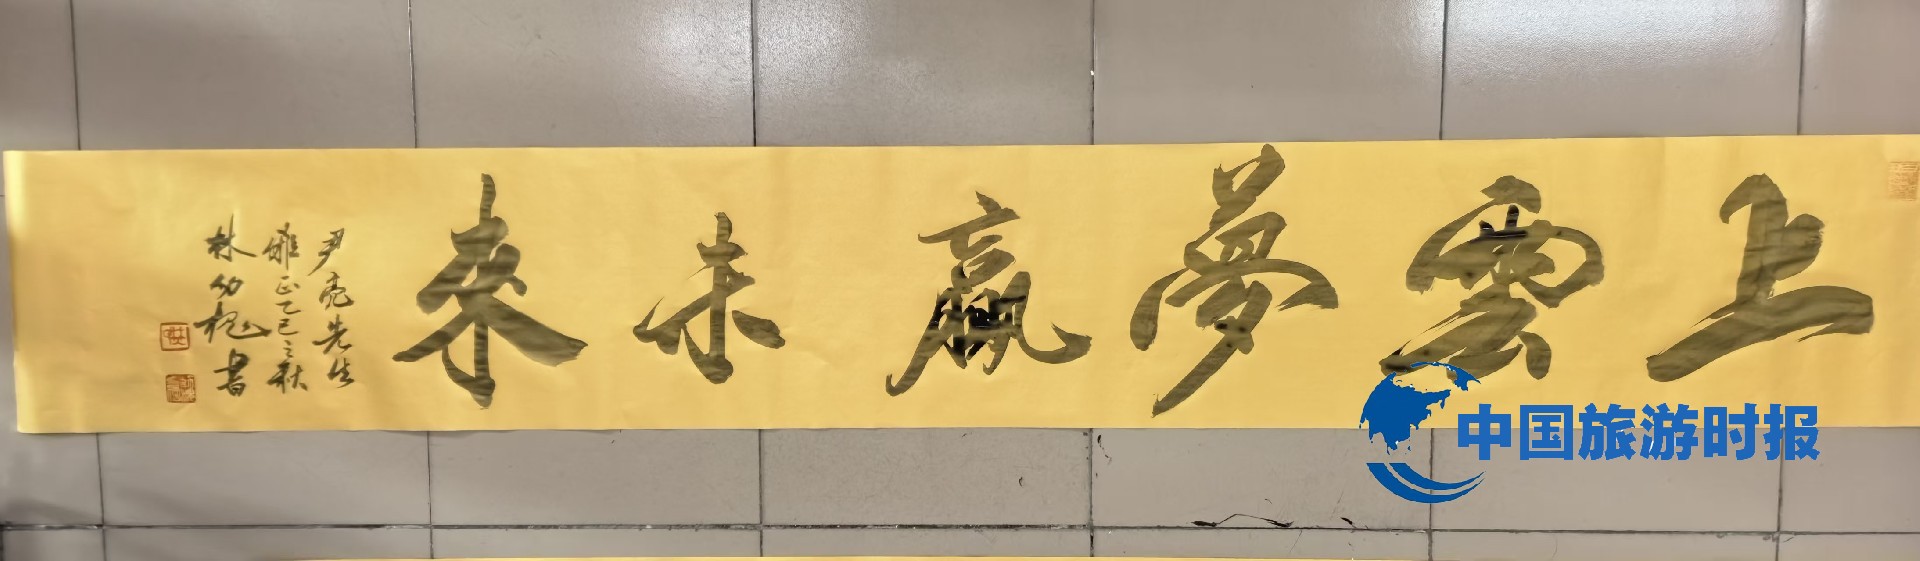 上雲夢贏未來
尹亮先生
雅正乙巳之秋
林幼槐書
中国旅游时报